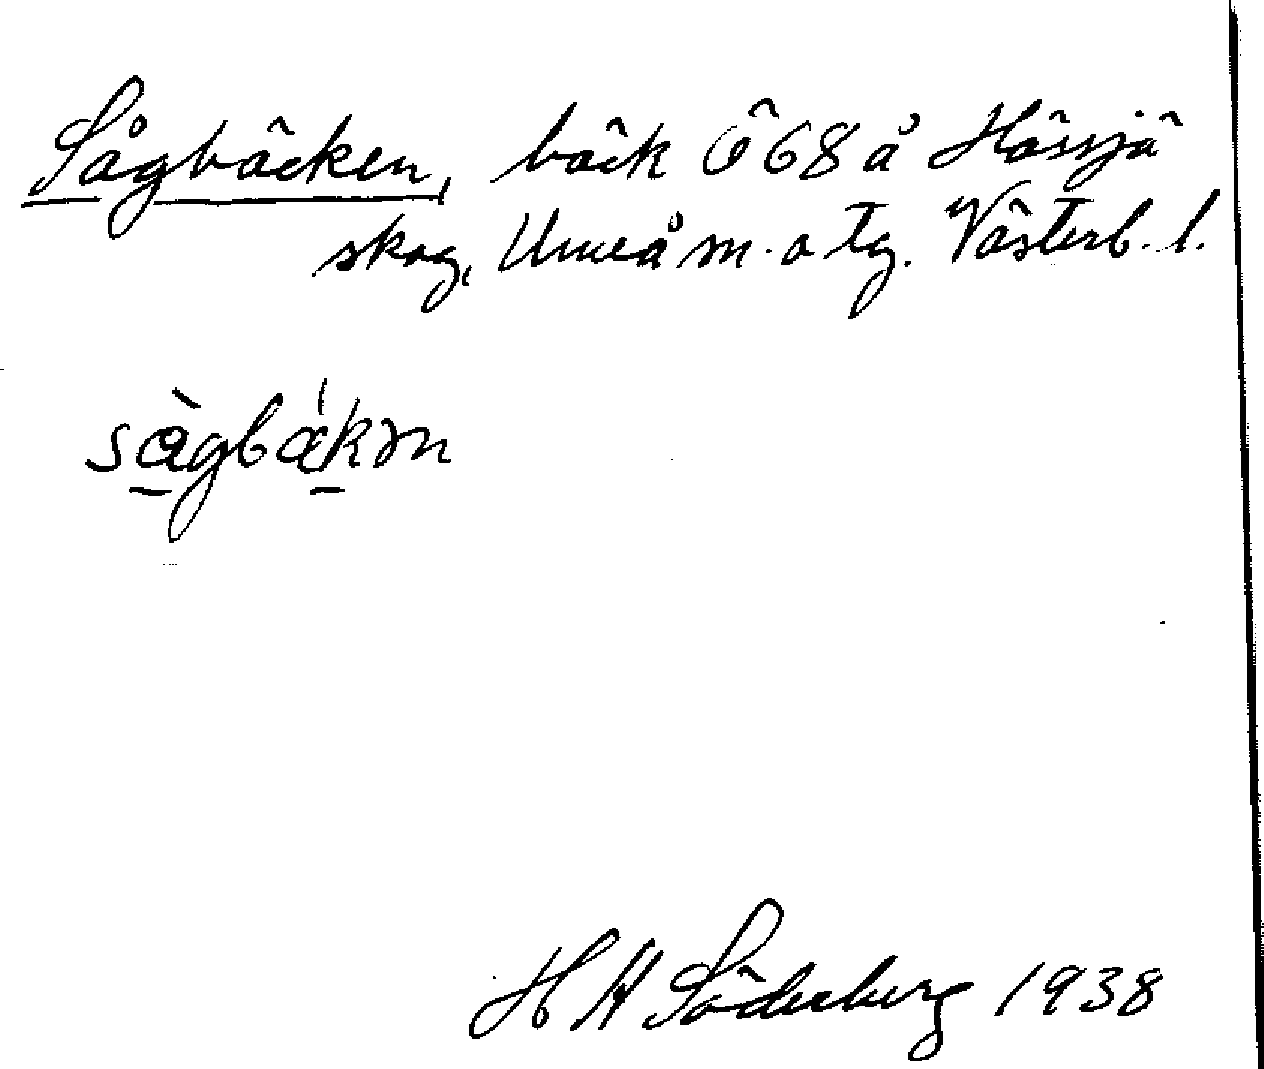 Sågbäcken, bäck Ö 68 å Hässjä
skog, Umeå m. o tg. Västerb. l.
sàgbǽkən
H H Söderberg 1938